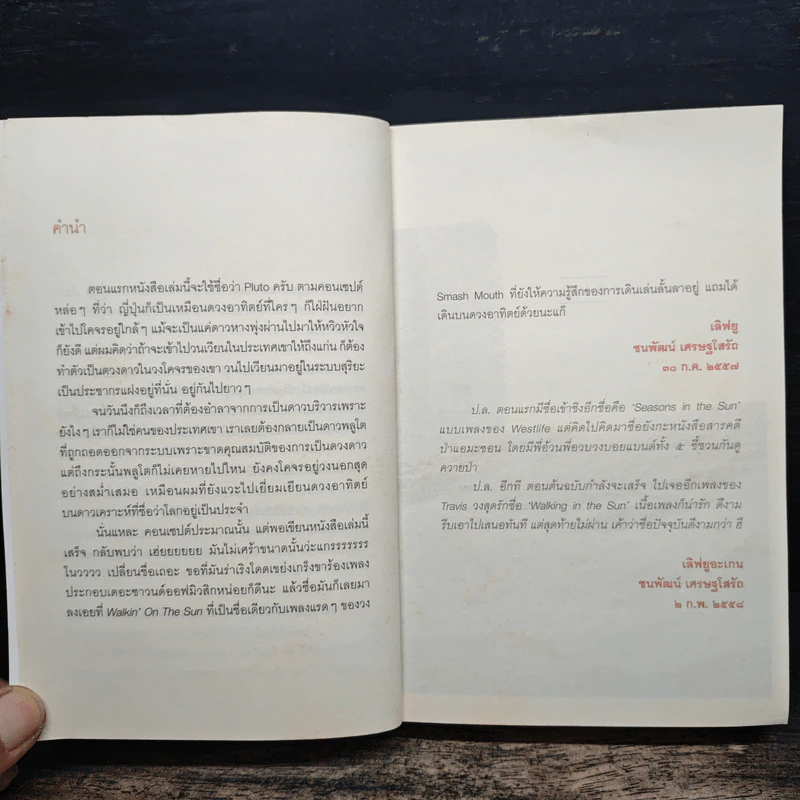 คำนำ
ตอนแรกหนังสือเล่มนี้จะใช้ชื่อว่า Pluto ครับ ตามคอนเซปต์
หล่อๆ ที่ว่า ญี่ปุ่นก็เป็นเหมือนดวงอาทิตย์ที่ใครๆ ก็ใฝ่ฝันอยาก
เข้าไปโคจรอยู่ใกล้ๆ แม้จะเป็นแค่ดาวหางพุ่งผ่านไปมาให้หวิวหัวใจ
ก็ยังดี แต่ผมคิดว่าถ้าจะเข้าไปวนเวียนในประเทศเขาให้ถึงแก่น ก็ต้อง
ทำตัวเป็นดวงดาวในวงโคจรของเขา วนไปเวียนมาอยู่ในระบบสุริยะ
เป็นประชากรแฝงอยู่ที่นั่น อยู่กันไปยาวๆ
จนวันนึงก็ถึงเวลาที่ต้องอำลาจากการเป็นดาวบริวารเพราะ
ยังไงๆ เราก็ไม่ใช่คนของประเทศเขา เราเลยต้องกลายเป็นดาวพลูโต
ที่ถูกถอดออกจากระบบเพราะขาดคุณสมบัติของการเป็นดวงดาว
แต่ถึงกระนั้นพลูโตก็ไม่เคยหายไปไหน ยังคงโคจรอยู่วงนอกสุด
อย่างสม่ำเสมอ เหมือนผมที่ยังแวะไปเยี่ยมเยียนดวงอาทิตย์
บนดาวเคราะห์ที่ชื่อว่าโลกอยู่เป็นประจำ
นั่นแหละ คอนเซปต์ประมาณนั้น แต่พอเขียนหนังสือเล่มนี้
เสร็จ กลับพบว่า เฮ่ยยยยยย มันไม่เศร้าขนาดนั้นว่ะแกรรรรรรร
โนวววว เปลี่ยนชื่อเถอะ ขอที่มันร่าเริงโดดเขย่งเกร็งขาร้องเพลง
ประกอบเดอะซาวนด์ออฟมิวสิกหน่อยก็ดีนะ แล้วชื่อมันก็เลยมา
ลงเอยที่ Walkin' On The Sun ที่เป็นชื่อเดียวกับเพลงแรดๆ ของวง
Smash Mouth ที่ยังให้ความรู้สึกของการเดินเล่นลั้นลาอยู่ แถมได้
เดินบนดวงอาทิตย์ด้วยนะแก๊
เลิฟยู
ชนพัฒน์ เศรษฐโสรัถ
๓๐ ก.ค. ๒๕๕๗
ป.ล. ตอนแรกมีชื่อเข้าชิงอีกชื่อคือ 'Seasons in the Sun'
แบบเพลงของ Westlife แต่คิดไปคิดมาชื่อยังกะหนังสือสารคดี
ป่าแอมะซอน โดยมีพี่อ้วนพี่อวบวงบอยแบนด์ทั้ง ๕ ชี้ชวนกันดู
ควายป่า
ป.ล. อีกที ตอนต้นฉบับกำลังจะเสร็จ ไปเจออีกเพลงของ
Travis วงสุดรักชื่อ 'Walking in the Sun' เนื้อเพลงก็น่ารัก ดีงาม
รีบเอาไปเสนอทันที แต่สุดท้ายไม่ผ่าน เค้าว่าชื่อปัจจุบันดีงามกว่า ฮี
เลิฟยูอะเกน
ชนพัฒน์ เศรษฐโสรัถ
๒ ก.พ. ๒๕๕๘